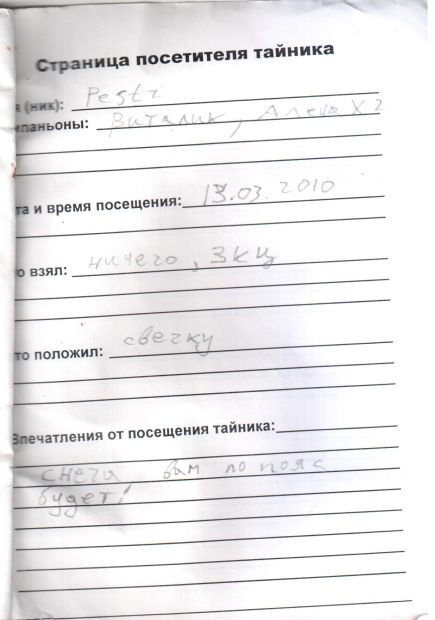 Страница посетителя тайника
я (ник): Pesti
мпаньоны: Виталик, Алеха х2
та и время посещения: 13.03.2010
о взял: ничего, ЗКЦ
то положил: свечку
Впечатления от посещения тайника:
снега вам по пояс
будет!